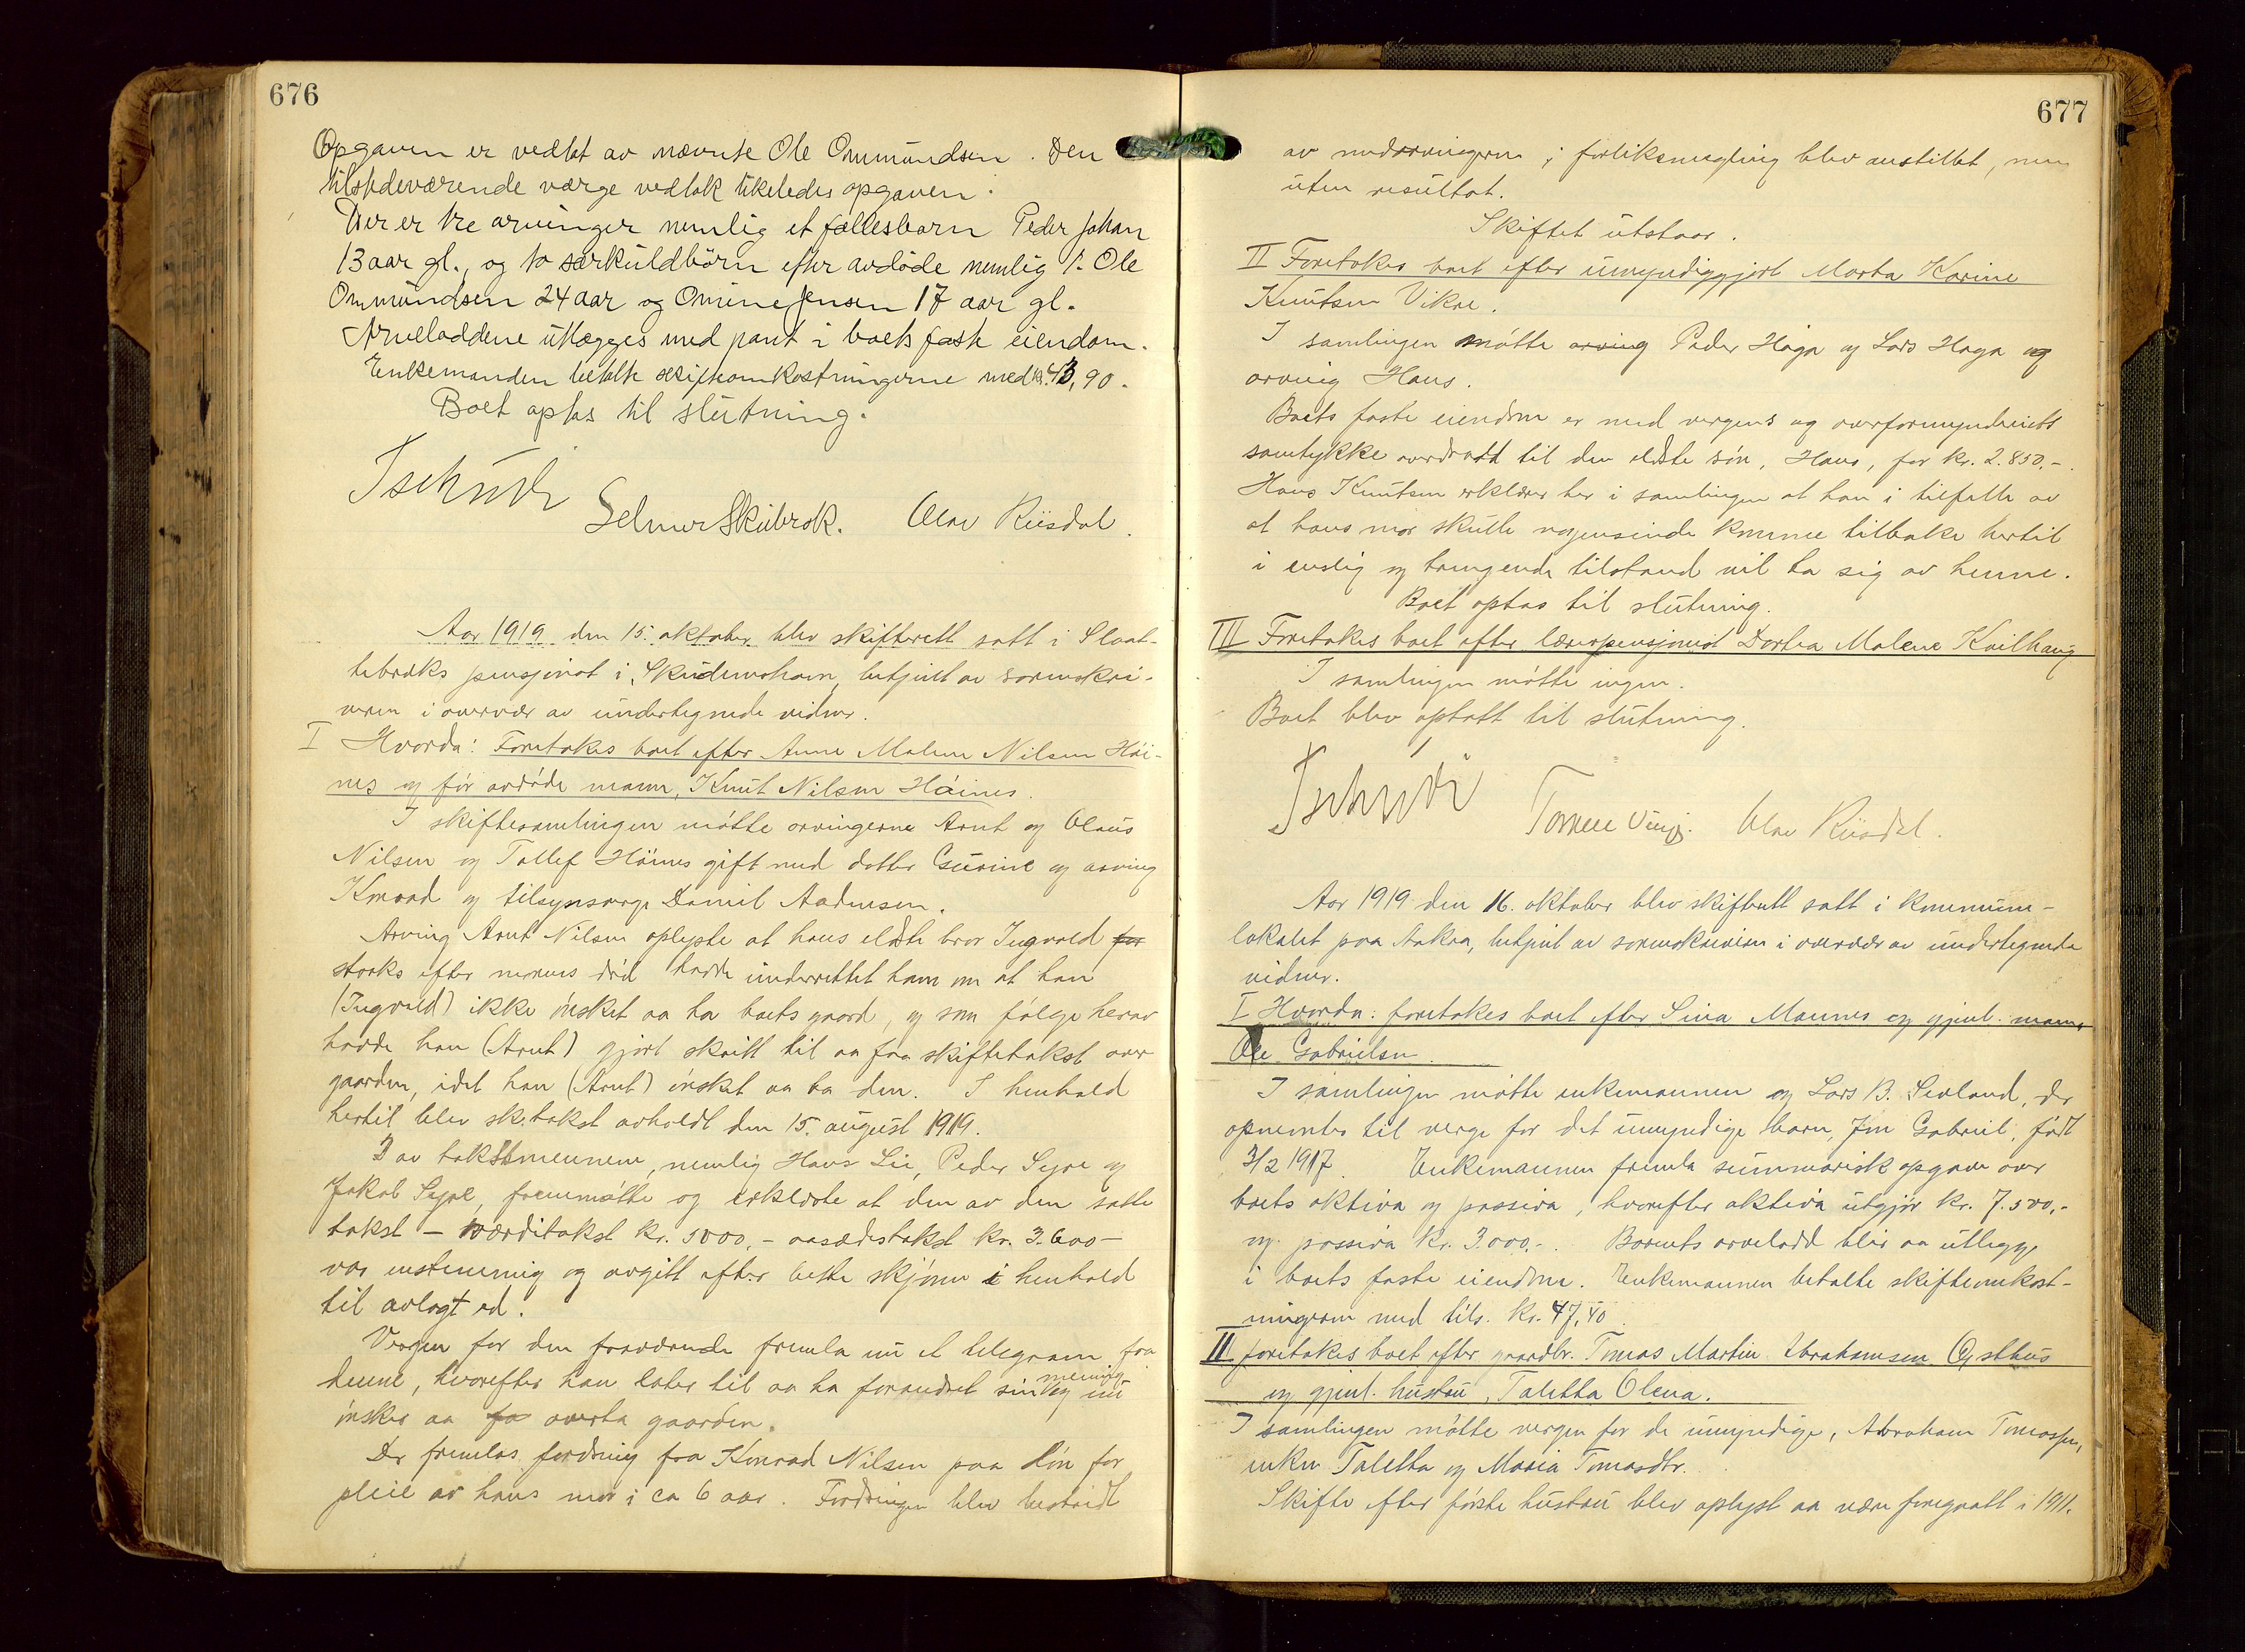 676
Opgaven er vedtat av nævnte Ole Ommundsen. Den
tilstedeværende værge vedtok likeledes opgaven.
Der er tre arvinger nemlig et fællesbarn Peder Johan
13 aar gl., og to særkuldbörn efter avdöde nemlig 1. Ole
Ommundsen 24 aar og Omine Jensen 17 aar gl.
Arveloddene utlægges med pant i boets faste eiendom.
Enkemanden betalte skifteomkostningerne med kr. 43,90.
Boet optas til slutning.
Tschudi
Selmer Skibrek. Olav Riisdal.
Aar 1919 den 15. oktober blev skifterett satt i Slaat-
tebræks pensjonat i Skudeneshavn, betjent av sorenskri-
veren i overvær av undertegnede vidner.
I Hvorda: Foretokes boet efter Anne Malene Nilsen Höi-
nes og för avdöde mann, Knut Nilsen Höines.
I skiftesamlingen mötte arvingerne Arnt og Olaus
Nilsen og Tollef Höines gift med datter Gurine og arving
Konrad og tilsynsverge Daniel Aadnesen.
Arving Arnt Nilsen oplyste at hans eldste bror Ingvald for
straks efter morens död hadde underrettet ham om at han
(Ingvald) ikke önsket aa ha boets gaard, og som fölge herav
hadde han (Arnt) gjort skritt til aa faa skiftetakst over
gaarden, idet han (Arnt) önsket aa ta den. I henhold
hertil blev sk.takst avholdt den 15. august 1919.
3 av takstmennene, nemlig Hans Lie, Peder Syre og
Jakob Syre, fremmötte og erklærte at den av dem satte
takst – værditakst kr. 5000,- aasædestakst kr. 3.600-
var enstemmig og avgitt efter beste skjönn i henhold
til avlagt ed.
Vergen for den fraværende fremla nu et telegram fra
denne, hvorefter han later til aa ha forandret sin mening og nu
önsker aa fo overta gaarden.
Der fremlas fordring fra Konrad Nilsen paa lön for
pleie av hans mor i ca 6 aar. Fordringen blev bestridt
677
av medarvingerne; forliksmegling blev anstillet, men
uten resultat.
Skiftet utstaar.
II Foretokes boet efter umyndiggjort Marta Karine
Knutsen Vikre.
I samlingen mötte arving Peder Haga og Lars Haga og
arving Hans.
Boets faste eiendom er med vergens og overformynderiets
samtykke overdratt til den eldste sön, Hans, for kr. 2.850.-.
Hans Knutsen erklærer her i samlingen at han i tilfelle av
at hans mor skulle nogensinde komme tilbake hertil
i enslig og trengende tilstand vil ta sig av henne.
Boet optas til slutning.
III Foretokes boet efter lærerpensjonist Dortea Malene Kvilhaug
I samlingen mötte ingen.
Boet blev optatt til slutning.
Tschudi Olav Riisdal.
Aar 1919 den 16. oktober blev skifterett satt i kommune-
lokalet paa Aakra, betjent av sorenskriveren i overvær av undertegnede
vidner.
I Hvorda: foretokes boet efter Sina Mannes og gjenl. mann
Ole Gabrielsen.
I samlingen mötte enkemannen og Lars B. Sevland, der
opnevntes til verge for det umyndige barn, Jon Gabriel, födt
3/2 1917. Enkemannen fremla summarisk opgave over
boets aktiva og passiva, hvorefter aktiva utgjör kr. 7.500,-
og passiva kr. 3.000.-. Barnets arvelodd blir aa utlegge
i boets faste eiendom. Enkemannen betalte skifteomkost-
ningerne med tils. kr. 47,40.
II foretokes boet efter gaardbr. Tomas Martin Abrahamsen Östhus
og gjenl. hustru, Taletta Olena.
I samlingen mötte vergen for de umyndige, Abraham Tomassen,
enken Taletta og Maria Tomasdtr.
Skifte efter förste hustru blev oplyst aa være foregaatt i 1911.